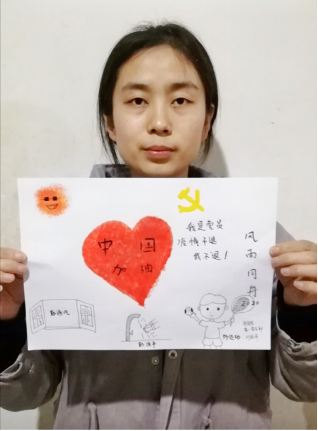 中国
加油
我是党员
疫情不退
我不退！
风雨同舟
2020
勤通风
勤洗手